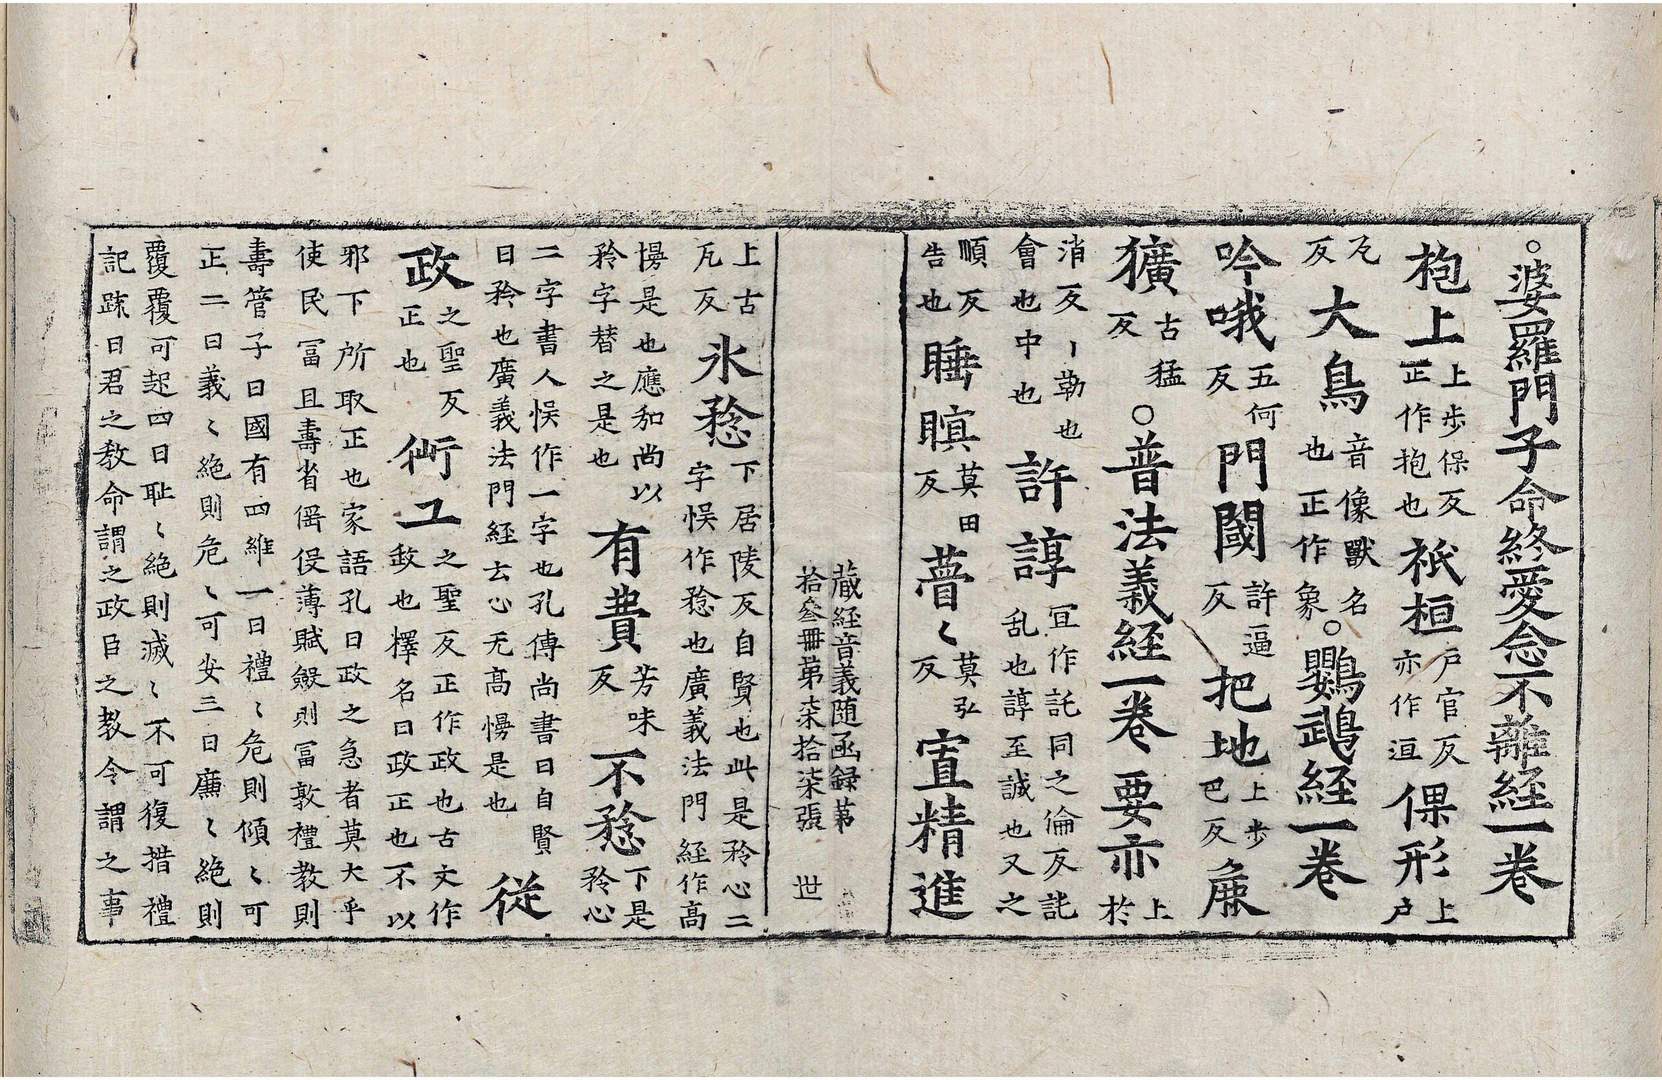 ○婆羅門子命終愛念不離経一卷
枹上上步保反正作抱也祇桓戸官反亦作洹倮形上戸
瓦反大鳥音像獸名也正作象○鸚鵡経一卷
吟哦五何反門閾許逼反把地上步巴反麁
獷古猛反○普法義経一卷要亦上於
消反丨勒也會也中也許諄冝作託同之倫反訰乱也諄至誠也又之
順反告也睡瞑莫田反瞢〻莫弘反寘精進
藏経音義随函録苐拾叄冊苐柒拾柒張 世
上古瓦反氷矜下居陵反自賢也此是矜心二字悮作矜也廣義法門経作髙
慢是也應和尚以矜字替之是也有費芳味反不矜下是矜心
二字書人悮作一字也孔傳尚書曰自賢曰矜也廣義法門経云心无髙慢是也従
政之聖反正也衘工之聖反正作政也古文作㱏也釋名曰政正也不以
邪下所取正也家語孔曰政之急者莫大乎使民冨且壽省𠊳役薄賦斂則冨敦禮教則
壽管子曰國有四維一曰禮〻危則傾〻可正二曰義〻絶則危〻可安三曰廉〻絶則
覆覆可起四曰耻〻絶則滅〻不可復措禮記䟽曰君之教命謂之政臣之教令謂之事